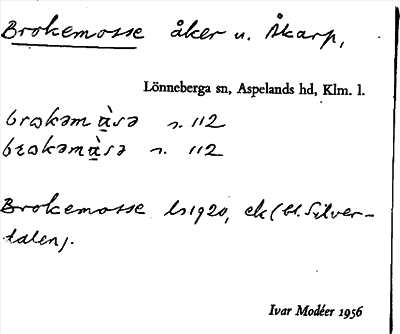 Brokemosse åker u. Åkarp,
Lönneberga sn, Aspelands hd, Klm. l.
s. 112
s. 112
Brokemosse ls 1920, ek (bl. Silver-
dalen).
Ivar Modéer 1956